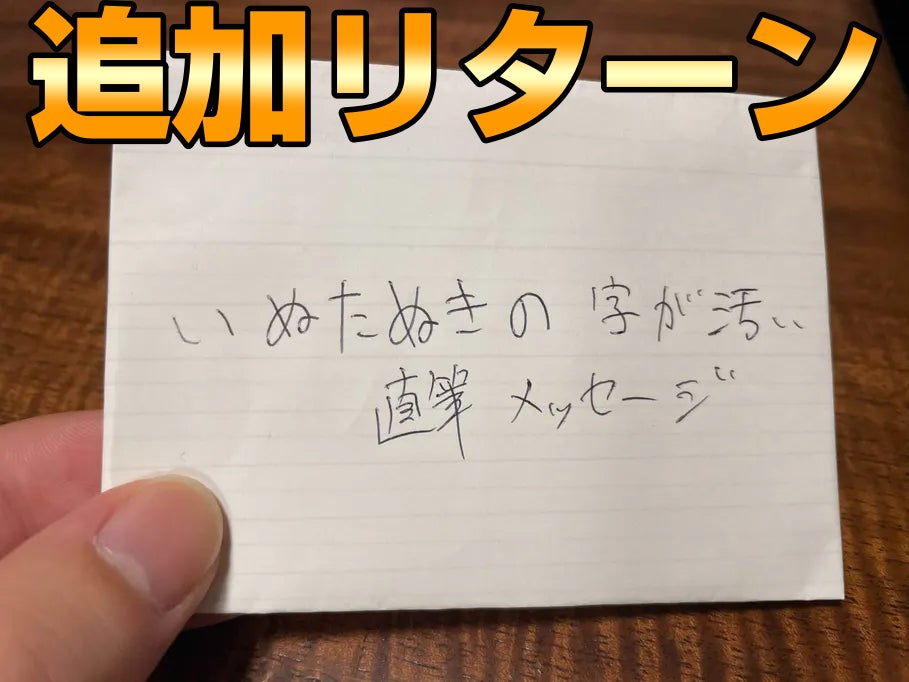 追加リターン
いぬたぬきの字が汚い
直筆メッセージ